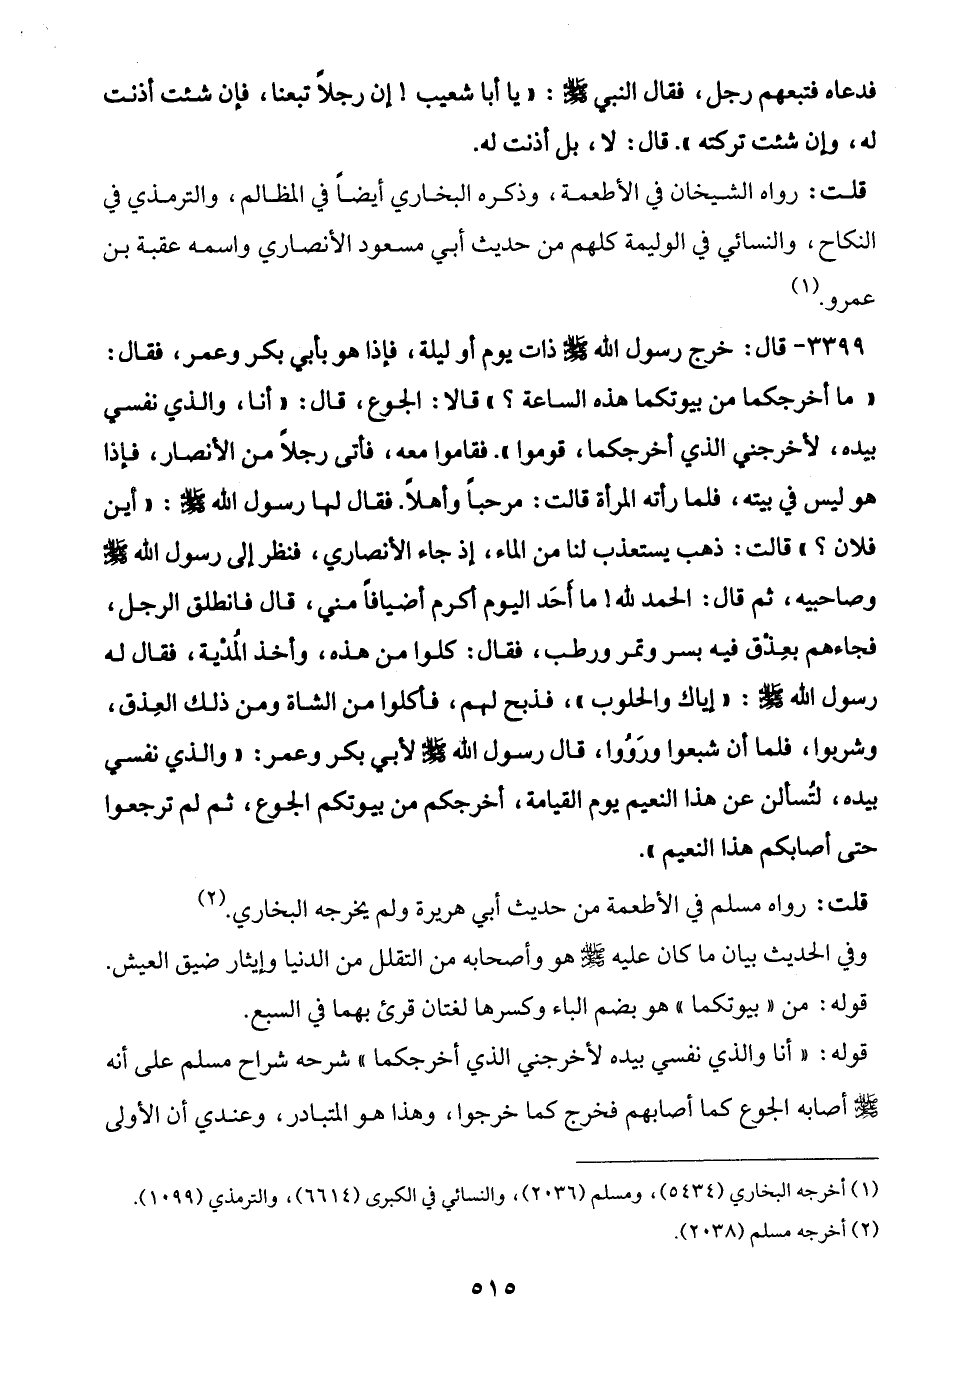 فدعاه فتبعهم رجل، فقال النبي ﷺ : « يا أبا شعيب ! إن رجلاً تبعنا، فإن شئت أذنت
له، وإن شئت تركته ». قال: لا، بل أذنت له.
قلت: رواه الشيخان في الأطعمة، وذكره البخاري أيضاً في المظالم، والترمذي في
النكاح، والنسائي في الوليمة كلهم من حديث أبي مسعود الأنصاري واسمه عقبة بن
عمرو.(١)
٣٣٩٩- قال: خرج رسول الله ﷺ ذات يوم أو ليلة، فإذا هو بأبي بكر وعمر، فقال:
« ما أخرجكما من بيوتكما هذه الساعة ؟ » قالا: الجوع، قال: « أنا، والذي نفسي
بيده، لأخرجني الذي أخرجكما، قوموا ». فقاموا معه، فأتى رجلاً من الأنصار، فإذا
هو ليس في بيته، فلما رأته المرأة قالت: مرحباً وأهلاً. فقال لها رسول الله ﷺ : « أين
فلان ؟ » قالت: ذهب يستعذب لنا من الماء، إذ جاء الأنصاري، فنظر إلى رسول الله ﷺ
وصاحبيه، ثم قال: الحمد لله! ما أَحَد اليوم أكرم أضيافاً مني، قال فانطلق الرجل،
فجاءهم بعِذْق فيه بسر وتمر ورطب، فقال: كلوا من هذه، وأخذ المُدْية، فقال له
رسول الله ﷺ : « إياك والحلوب »، فذبح لهم، فأكلوا من الشاة ومن ذلك العِذق،
وشربوا، فلما أن شبعوا ورَوُوا، قال رسول الله ﷺ لأبي بكر وعمر: « والذي نفسي
بيده، لتُسألن عن هذا النعيم يوم القيامة، أخرجكم من بيوتكم الجوع، ثم لم ترجعوا
حتى أصابكم هذا النعيم ».
قلت: رواه مسلم في الأطعمة من حديث أبي هريرة ولم يخرجه البخاري.(٢)
وفي الحديث بيان ما كان عليه ﷺ هو وأصحابه من التقلل من الدنيا وإيثار ضيق العيش.
قوله: من « بيوتكما » هو بضم الباء وكسرها لغتان قرئ بهما في السبع.
قوله: « أنا والذي نفسي بيده لأخرجني الذي أخرجكما » شرحه شراح مسلم على أنه
ﷺ أصابه الجوع كما أصابهم فخرج كما خرجوا، وهذا هو المتبادر، وعندي أن الأولى
(١) أخرجه البخاري (٥٤٣٤)، ومسلم (٢٠٣٦)، والنسائي في الكبرى (٦٦١٤)، والترمذي (١٠٩٩).
(٢) أخرجه مسلم (٢٠٣٨).
٥١٥